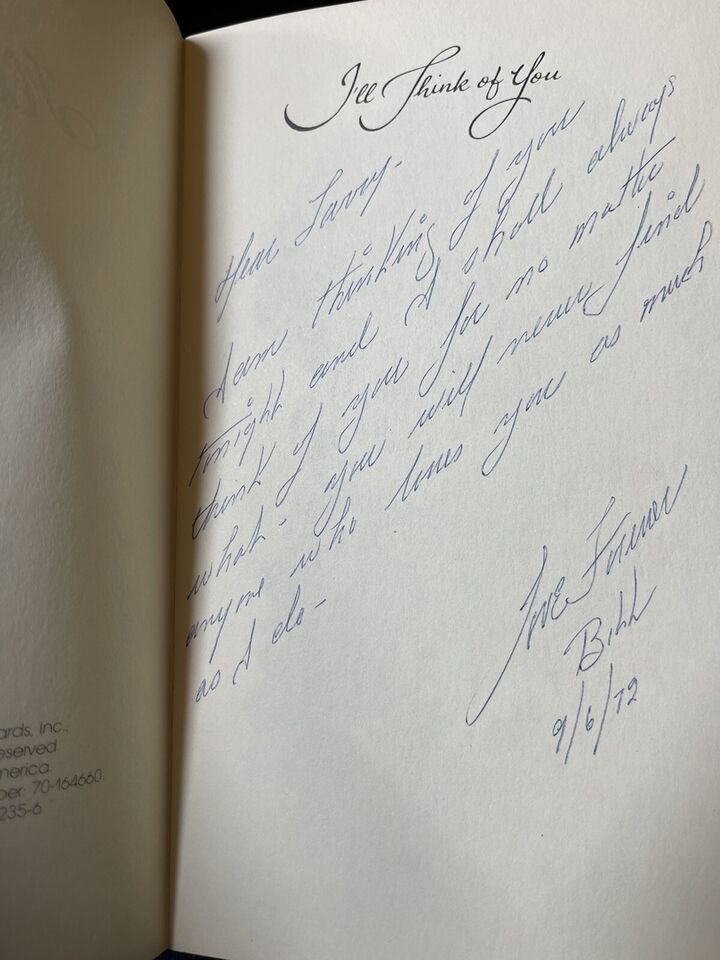 I'll Think of You
Dear Larry-
I am thinking of you
tonight and I shall always
think of you for no matter
what - you will never find
anyone who loves you as much
as I do -
Love Forever
Bill
9/6/72
ards, Inc.,
eserved.
merica.
ber: 70-164660.
235-6